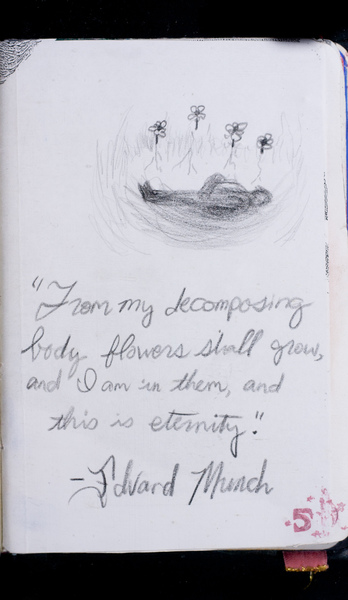 "From my decomposing
body flowers shall grow,
and I am in them, and
this is eternity."
-Edvard Munch